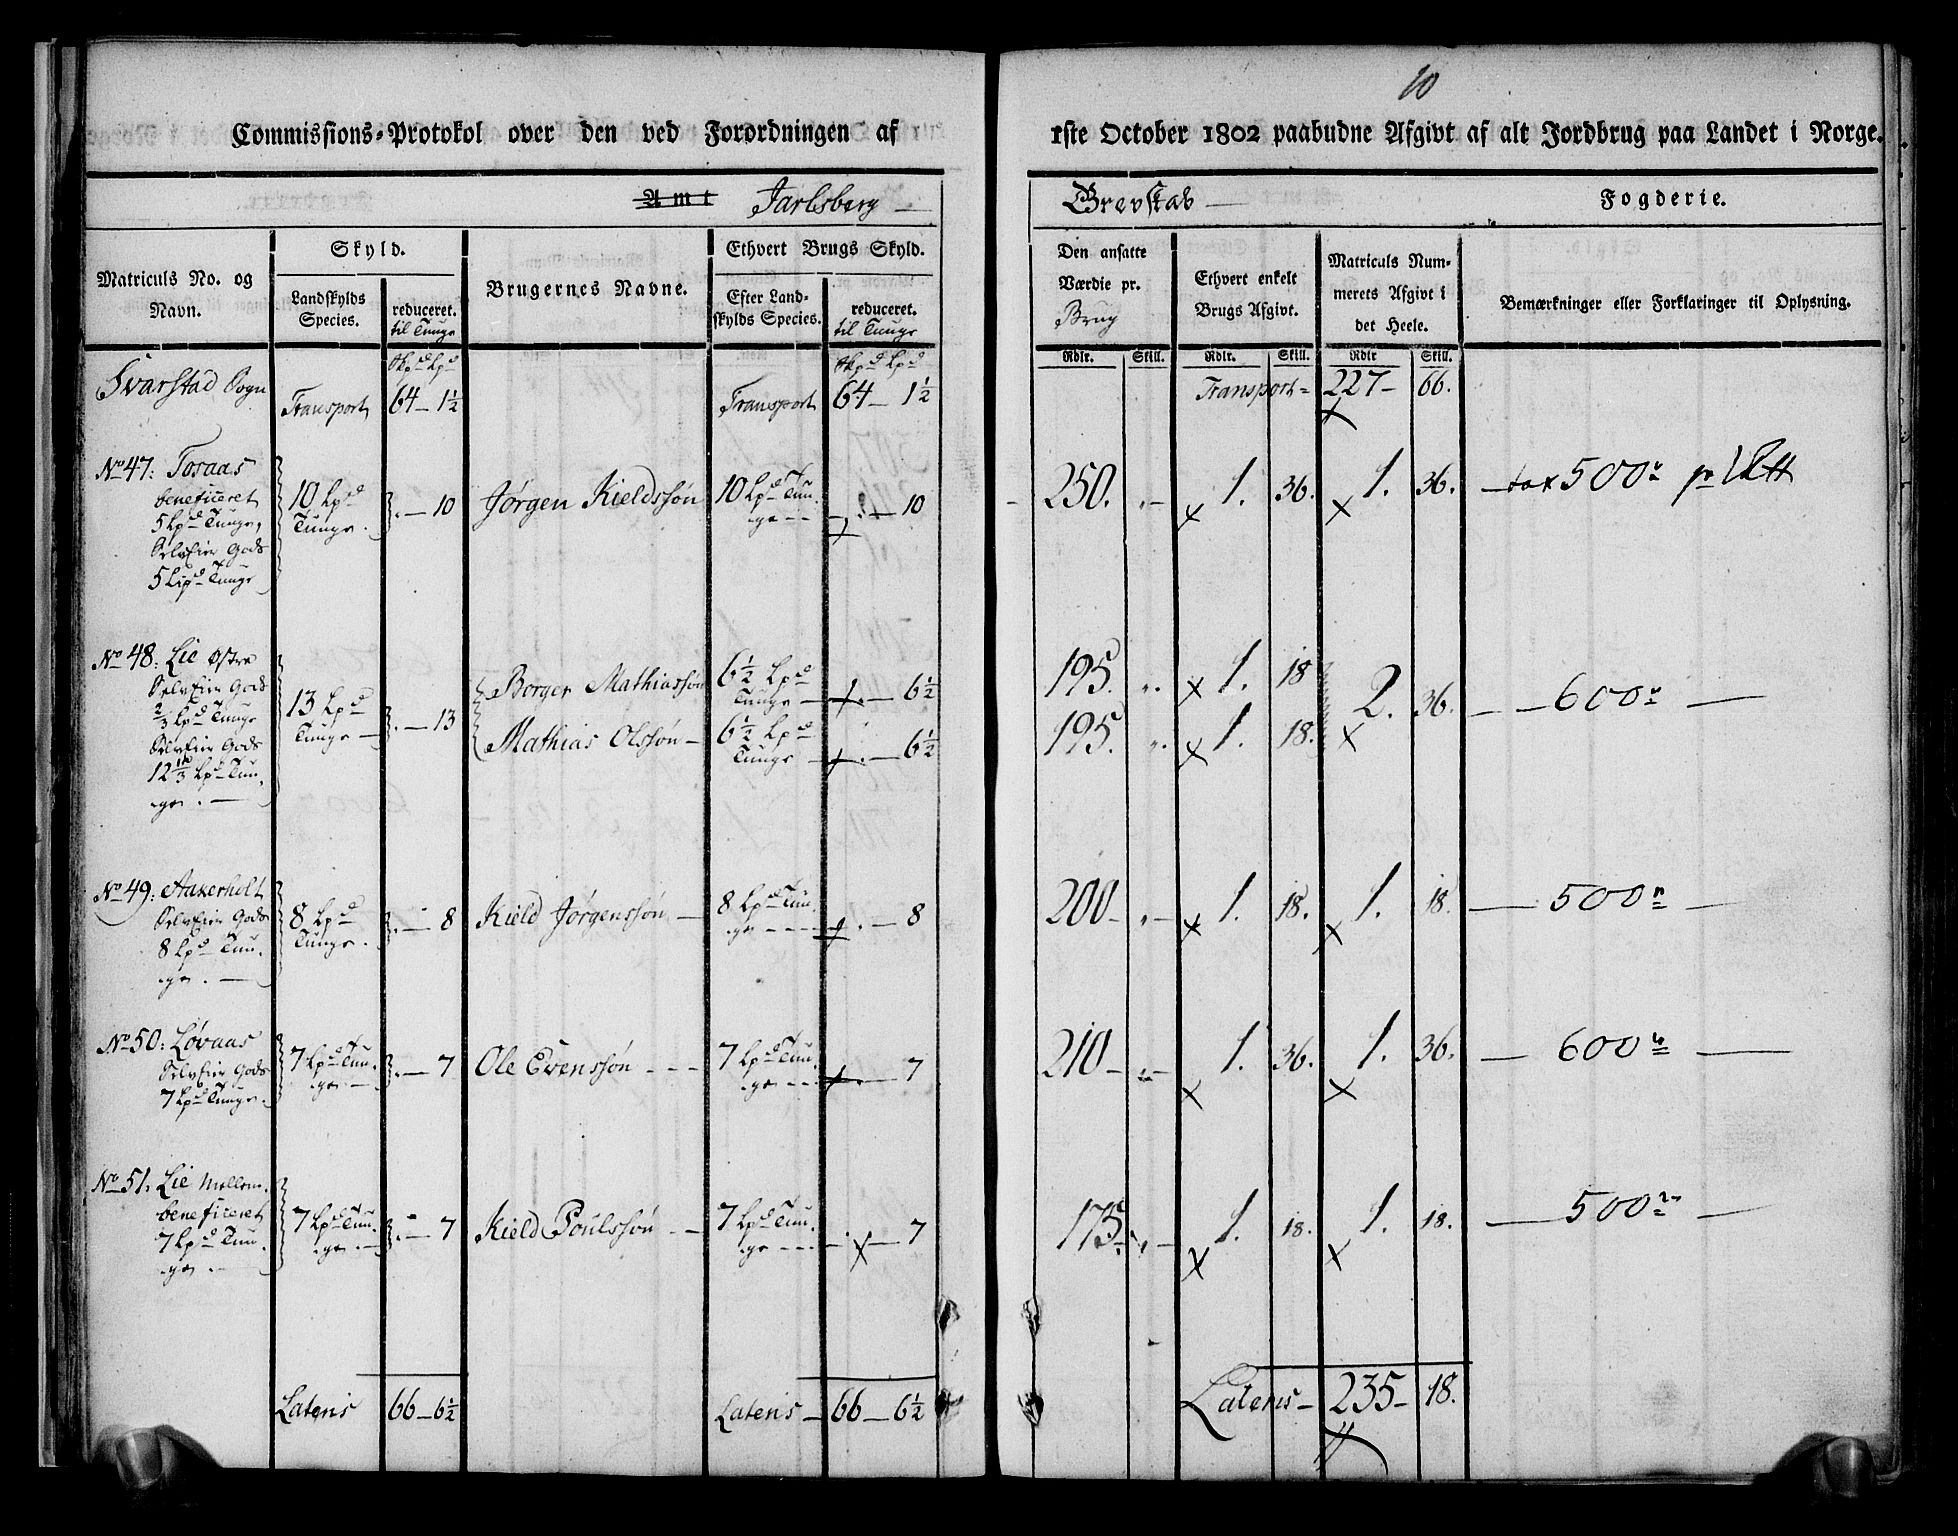 10
Commissions-Protokol over den ved Forordningen af 1ste October 1802 paabudne Afgivt af alt Jordbrug paa Landet i Norge.
Amt Jarlsberg — Grevskab — Fogderie.
Matriculs No. og Navn.
Skyld.
Landskylds Species.
reduceret. til Tunge
Brugernes Navne.
Ethvert Brugs Skyld.
Efter Landskylds Species.
reduceret. til Tunge
Den ansatte Værdie pr. Brug
Ethvert enkelt Brugs Afgivt.
Matriculs Nummerets Afgivt i det Heele.
Bemærkninger eller Forklaringer til Oplysning.
Skpd Lpd
Skpd Lpd
Rdlr. Skill. Rdlr. Skill. Rdlr Skill.
Svarstad Sogn
Transport 64 — 1½
Transport 64 — 1½
Transport = 227 — 66.
No 47: Toraas
beneficeret
5 Lpd Tunge,
Selveier Gods
5 Lipd Tunge
10 Lpd Tunge . — 10
Jørgen Kieldssøn
10 Lpd Tunge — — . — 10
250. „ — 1. 36. 1. 36. — tax 500 r
No 48: Lie østre
Selveier Gods
2/3 Lpd Tunge
Selveier Gods
12 1/3 Lpd Tunge . —
13 Lpd Tunge — . — 13
Borger Mathiassøn
6½ Lpd Tunge — . — 6½
195. „ 1. 18
Mathias Olssøn —
6½ Lpd Tunge — . — 6½
195. „ 1. 18.
2. 36. — — 600 r —
No 49: Aakerholt
Selveier Gods
8 Lpd Tunge . —
8 Lpd Tunge . . — 8
Kield Jørgenssøn —
8 Lpd Tunge — — — . — 8
200 — „ — 1. 18. 1. 18. — 500 r —
No 50: Løvaas
Selveier Gods
7 Lpd Tunge .
7 Lpd Tunge — . — 7
Ole Evenssøn — — —
7 Lpd Tunge — — — . — 7
210 — „ — 1. 36. 1. 36. — 600 r —
No 51. Lie Mellem.
beneficeret
7 Lpd Tunge . —
7 Lpd Tunge . — . — 7
Kield Poulssøn — —
7 Lpd Tunge — — — . — 7
175. „ — 1. 18. 1. 18. — 500 r —
Latens 66 — 6½
Latens — 66 — 6½
Latens — 235 — 18.